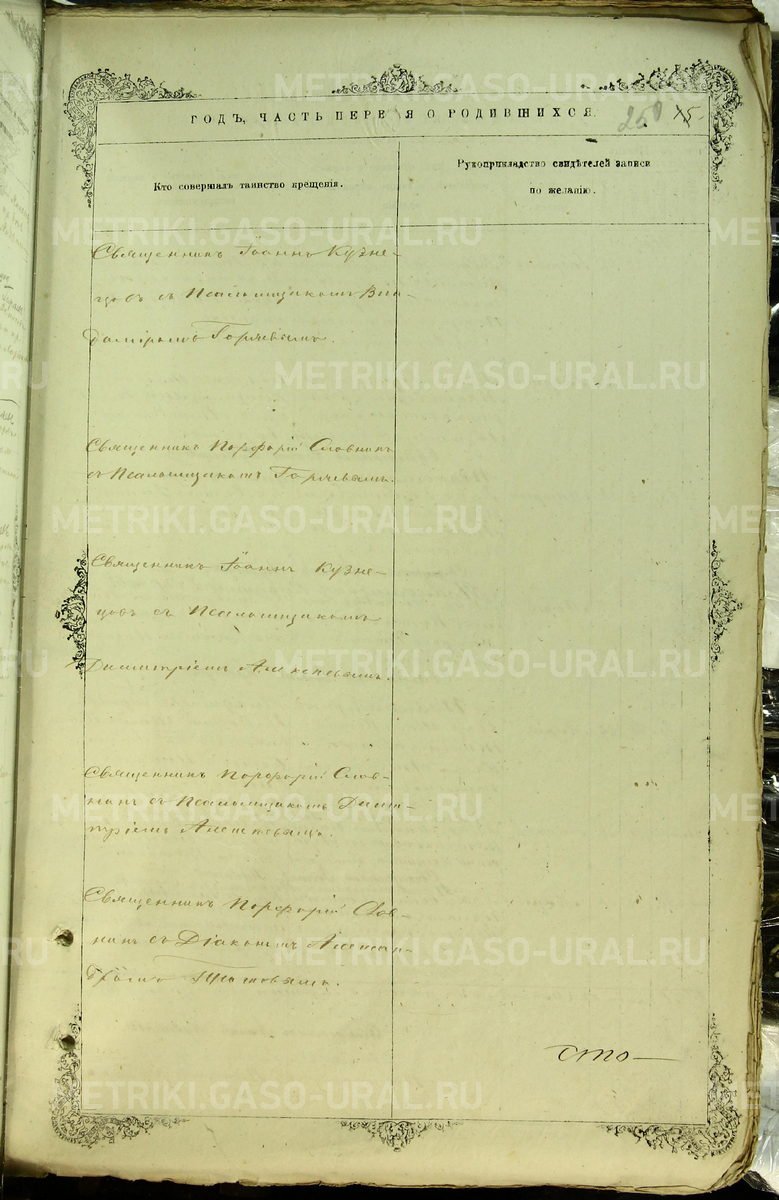 ГОДЪ, ЧАСТЬ ПЕРВАЯ О РОДИВШИХСЯ.
250 15
Кто совершалъ таинство крещенія.
Рукоприкладство свидѣтелей записи
по желанію.
Священникъ Іоаннъ Кузне-
цовъ съ Псаломщикомъ Вла-
диміромъ Горяевымъ.
Священникъ Порфирій Словнинъ
съ Псаломщикомъ Горяевымъ.
Священникъ Іоаннъ Кузне-
цовъ съ Псаломщикомъ
Димитріемъ
Священникъ Порфирій Слов-
нинъ съ Псаломщикомъ Дими-
тріемъ
Священникъ Порфирій Слов-
нинъ съ Діакономъ Алексан-
дромъ
сто
METRIKI.GASO-URAL.RU